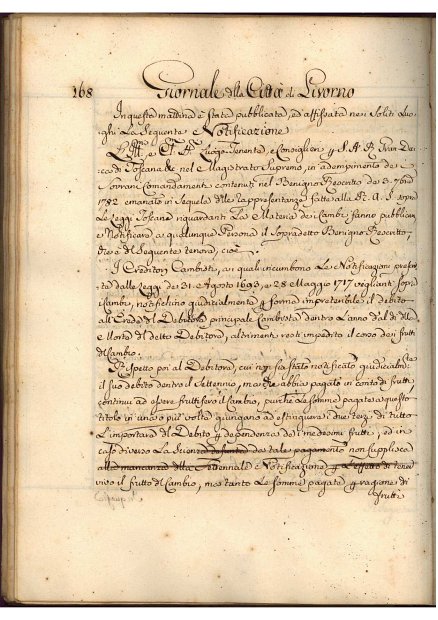 168 Giornale della Città di Livorno
In questa mattina è stata pubblicata, ed affissata nei Soliti Luo-
ghi La Seguente Notificazione
Luogo Tenente, e Consiglieri S. A. R. Gran Du-
ca di Toscana nel Magistrato Supremo, in adempimento de
Sovrani Comandamenti contenuti nel Benigno Rescritto de 3. 7bre
1782 emanato in Sequela delle rappresentanze fatte alla R. A. S. sopra
Le Leggi Toscane riguardanti La Materia dei Cambi fanno pubblicare
e Notificare a qualunque Persona il Sopradetto Benigno Rescritto,
che è del Seguente tenore, cioè
I Creditori Cambisti, a i quali incumbono Le Notificazioni prescrit-
te dalle Leggi de 31 Agosto 1693, e 28 Maggio 1717 veglianti Sopra
i Cambi, notifichino giudicialmente forma impreteribile il debito
all'Erede del Debitore principale Cambista dentro L'anno dal dì della
Morte del detto Debitore, altrimenti resti impedito il corso dei frutti
del Cambio.
Rispetto poi al Debitore, cui non sia stato notificato giudicialmte
il suo debito dentro il Settennio, ma che abbia pagato in conto di frutti
continui ad essere fruttifero il Cambio, purchè Le Somme pagate a questo
titolo in una, o più volte giungano ad estinguere i due terzi di tutto
L'importare del Debito dependenza dei medesimi frutti, ed in
caso diverso La Scienza di tale pagamento non supplisca
alla mancanza della Settennale Notificazione L'effetto di tener
vivo il frutto del Cambio, ma tanto Le Somme pagate ragione di
frutti